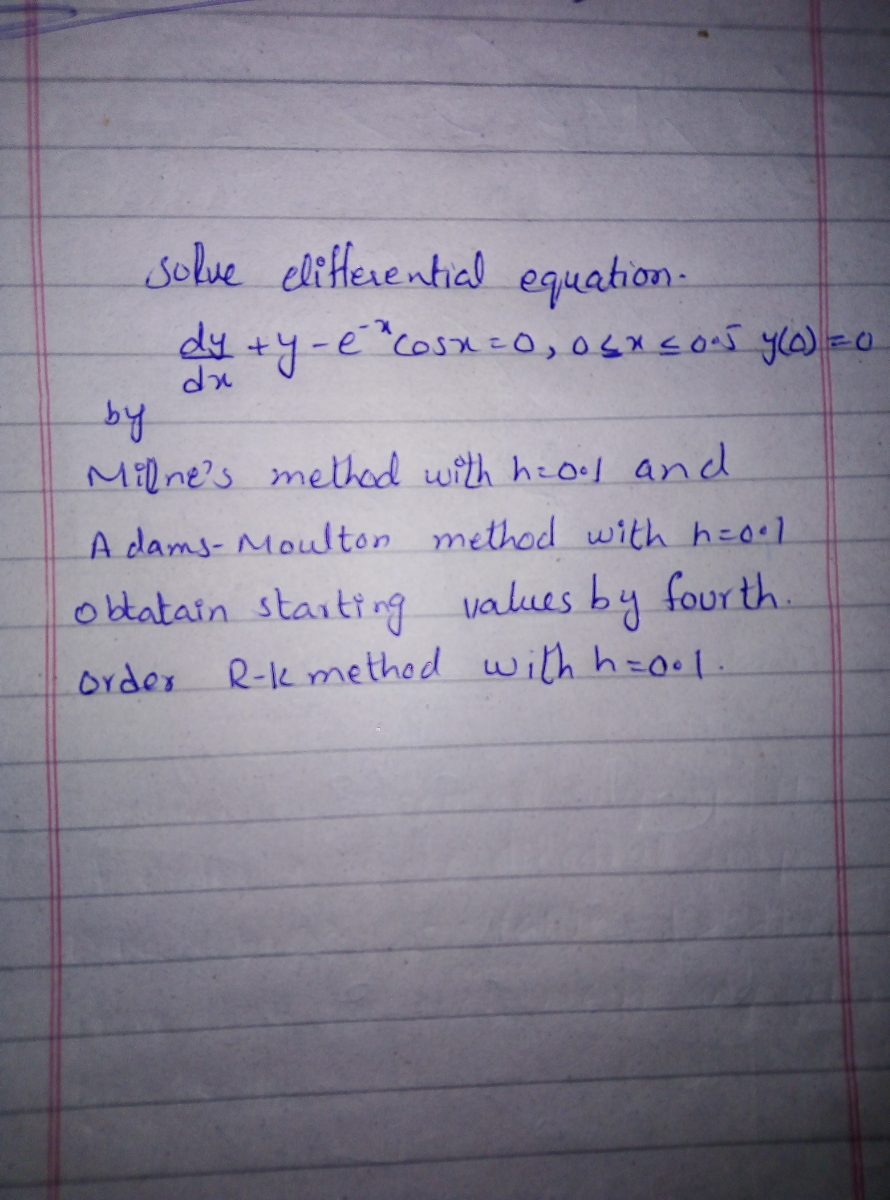 solve differential equation.
dy/dx + y - e^-x cosx = 0, 0 ≤ x ≤ 0.5 y(0) = 0
by
Milne's method with h=0.1 and
Adams-Moulton method with h=0.1
obtatain starting values by fourth.
order R-k method with h=0.1.